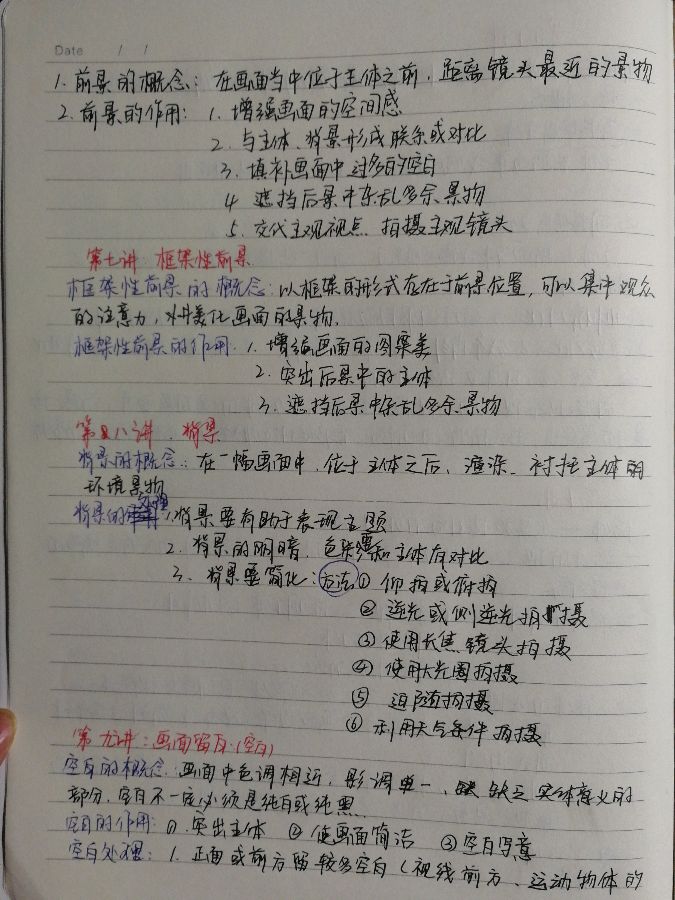 Date / /
1. 前景的概念：在画面当中位于主体之前，距离镜头最近的景物
2. 前景的作用：1. 增强画面的空间感
2. 与主体、背景形成联系或对比
3. 填补画面中过多的空白
4. 遮挡后景中杂乱多余景物
5. 交代主观视点 拍摄主观镜头
第七讲：框架性前景
框架性前景的概念：以框架的形式存在于前景位置，可以集中观众
的注意力，并美化画面的景物.
框架性前景的作用：1. 增强画面的图案美
2. 突出后景中的主体
3. 遮挡后景中杂乱多余景物
第八讲：背景
背景的概念：在一幅画面中，位于主体之后、渲染、衬托主体的
环境景物
背景的处理 1. 背景要有助于表现主题
2. 背景的明暗、色彩要和主体有对比
3. 背景要简化：方法① 仰拍或俯拍
② 逆光或侧逆光拍摄
③ 使用长焦镜头拍摄
④ 使用大光圈拍摄
⑤ 追随拍摄
⑥ 利用天气条件拍摄
第九讲：画面留白（空白）
空白的概念：画面中色调相近，影调单一、缺乏实体意义的
部分，空白不一定必须是纯白或纯黑
空白的作用：① 突出主体 ② 使画面简洁 ③ 空白写意
空白处理：1. 正面或前方留较多空白（视线前方、运动物体的